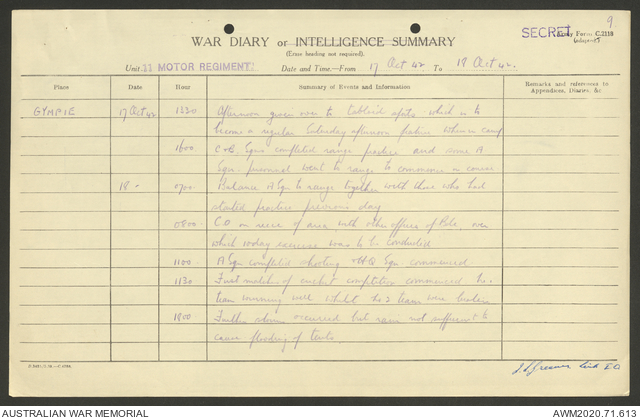 9
SECRET
Army Form C.2118
WAR DIARY or INTELLIGENCE SUMMARY
(Erase heading not required).
Unit 11 MOTOR REGIMENT Date and Time—From 17 Oct 42 To 18 Oct 42.
Place Date Hour Summary of Events and Information Remarks and references to Appendices, Diaries, &c.
GYMPIE 17 Oct 42 1330 Afternoon given over to tabloid sports which is to
become a regular Saturday afternoon feature when in camp
1600 C & B Sqns completed range practice and some A
Sqn personnel went to range to commence in course
18 " 0700 Balance A Sqn to range together with those who had
started practice previous day
0800 CO on recce of area with other officers of Bde, over
which 10 day exercise was to be conducted
1100 A Sqn completed shooting & HQ Sqn commenced
1130 First matches of cricket competition commenced No 1
team winning well whilst No 2 team were beaten
1800 Further storms occurred but rain not sufficient to
cause flooding of tents.
AUSTRALIAN WAR MEMORIAL
AWM2020.71.613